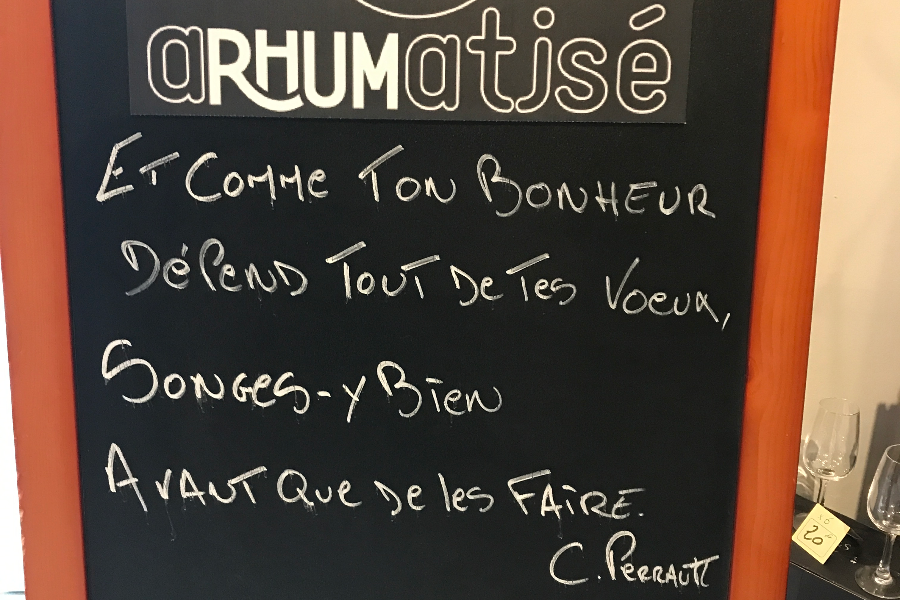 aRHUMatisé
ET COMME TON BONHEUR
DÉPEND TOUT DE TES VOEUX,
SONGES-Y BIEN
AVANT QUE DE LES FAIRE.
C. PERRAULT
20